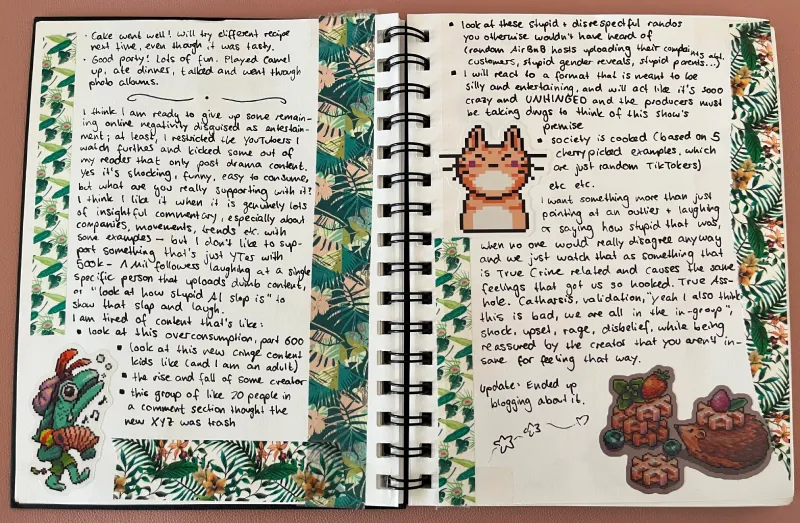 · Cake went well! Will try different recipe
next time, even though it was tasty.
· Good party! Lots of fun. Played Camel
up, ate dinner, talked and went though
photo albums.
I think I am ready to give up some remain-
ing online negativity disguised as entertain-
ment; at least, I restricted the YouTubers I
watch further and kicked some out of
my reader that only post drama content.
Yes it's shocking, funny, easy to consume,
but what are you really supporting with it?
I think I like it when it is genuinely lots
of insightful commentary, especially about
companies, movements, trends etc. with
some examples - but I don't like to sup-
port something that's just YTers with
500k - A mil followers laughing at a single
specific person that uploads dumb content,
or "look at how stupid AI slop is" to
show that slop and laugh.
I am tired of content that's like:
• look at this overconsumption, part 600
• look at this new cringe content
kids like (and I am an adult)
• the rise and fall of some creator
• this group of like 20 people in
a comment section thought the
new XYZ was trash
• look at these stupid + disrespectful randos
you otherwise wouldn't have heard of
(random AirBnB hosts uploading their complaints abt.
customers, stupid gender reveals, stupid parents...)
• I will react to a format that is meant to be
silly and entertaining, and will act like it's sooo
crazy and UNHINGED and the producers must
be taking drugs to think of this show's
premise
• society is cooked (based on 5
cherrypicked examples, which
are just random TikTokers)
etc etc.
I want something more than just
pointing at an outlier + laughing
or saying how stupid that was,
when no one would really disagree anyway
and we just watch that as something that
is True Crime related and causes the same
feelings that got us so hooked. True Ass-
hole. Catharsis, validation, "yeah I also think
this is bad, we are all in the in-group",
shock, upset, rage, disbelief, while being
reassured by the creator that you aren't in-
sane for feeling that way.
Update: Ended up
blogging about it.